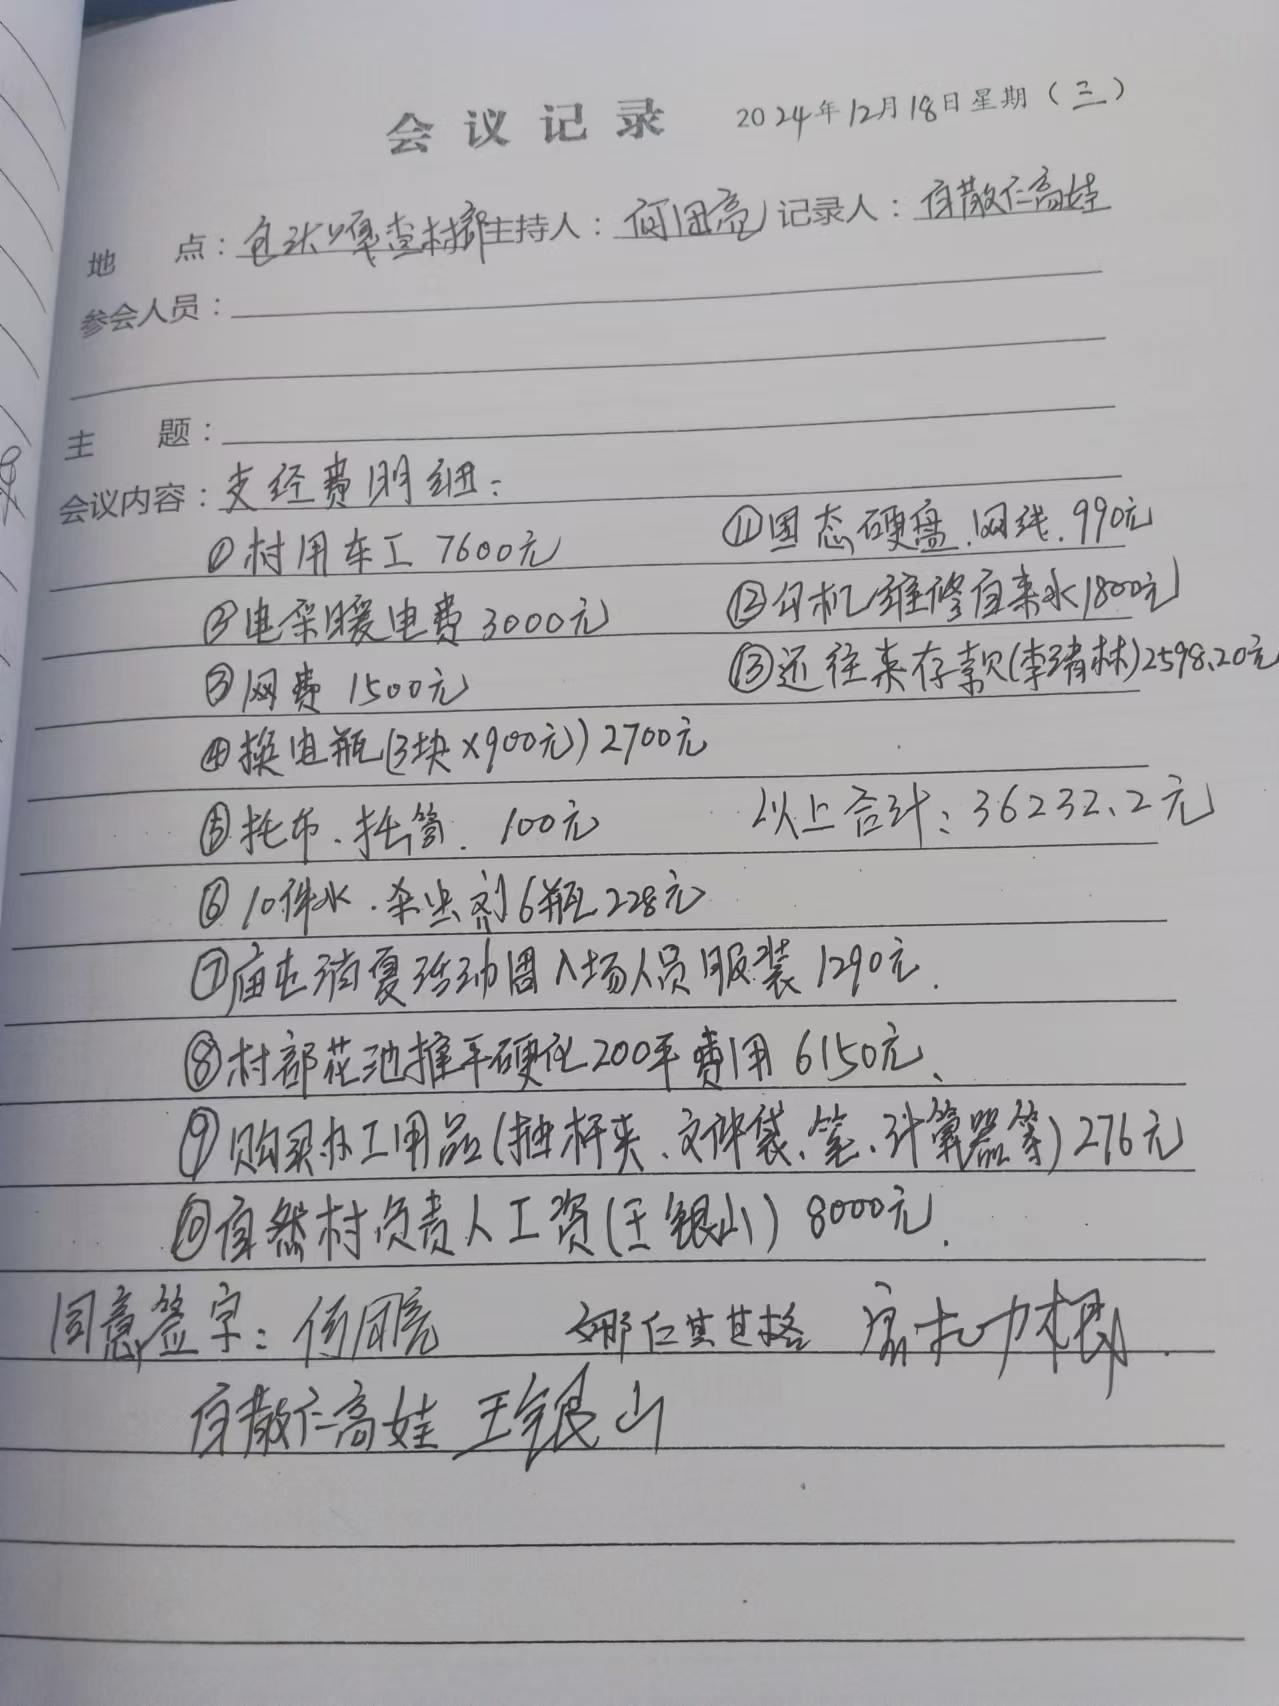 会议记录 2024年12月18日星期(三)
地 点:包达嘎查村部 主持人:何团亮 记录人:白散仁高娃
参会人员:
主 题:
会议内容:支经费明细:
①村用车工 7600元
②电采暖电费 3000元
③网费 1500元
④换电瓶(3块×900元)) 2700元
⑤托布、托筒. 100元
⑥10件水.杀虫剂6瓶 228元
⑦庙屯消夏活动周入场人员服装 1290元.
⑧村部花池推平硬化200平费用 6150元、
⑨购买办工用品(抽杆夹、文件袋、笔、计算器等) 276元
⑩自然村负责人工资(王银山) 8000元.
⑪固态硬盘.网线. 990元
⑫勾机维修自来水1800元
⑬还往来存款(李清林)2598.20元
以上合计:36232.2元
同意签字:何团亮 娜仁其其格
白散仁高娃 王银山